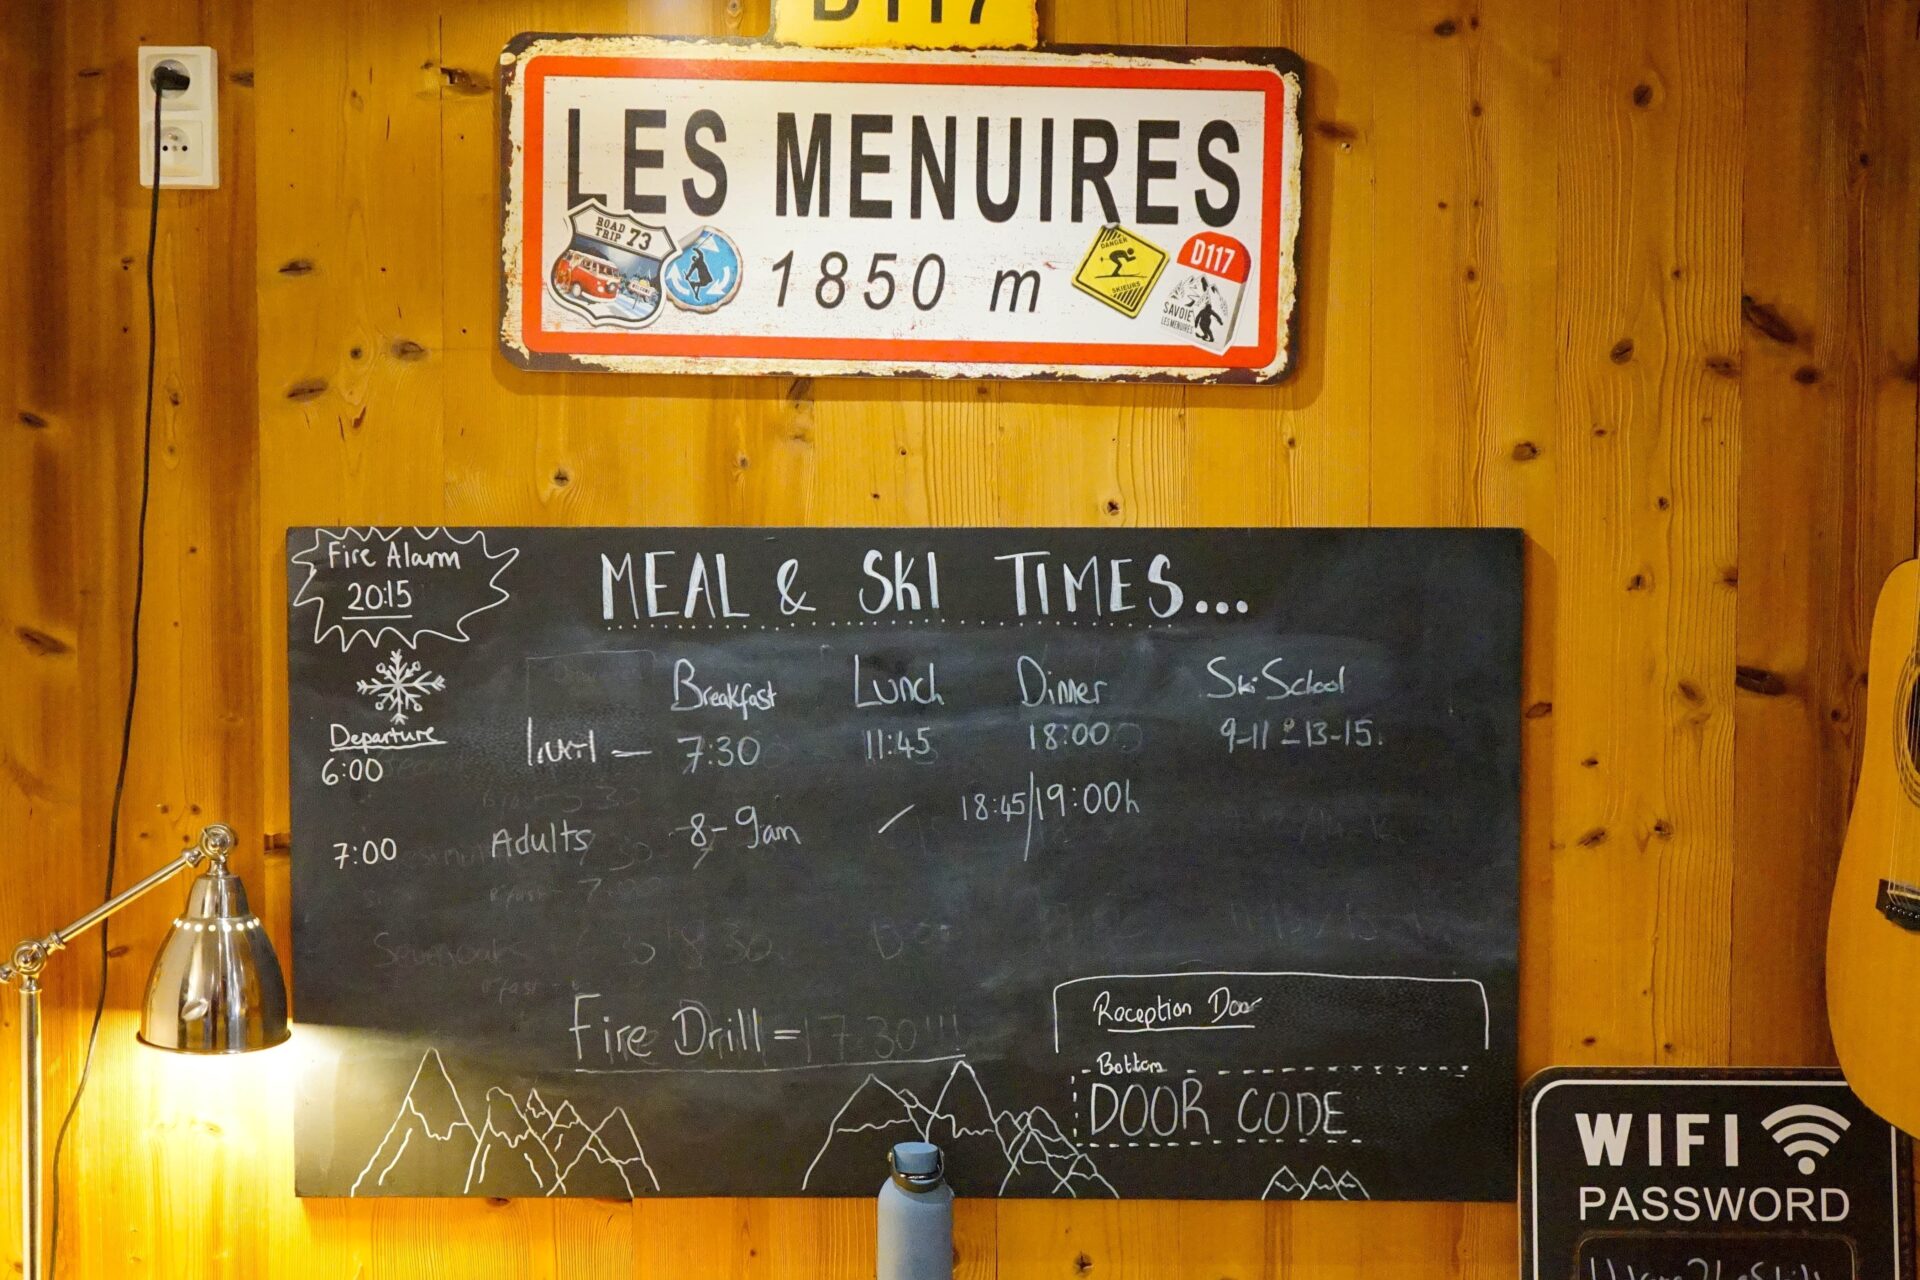 D117
LES MENUIRES
1850 m
ROAD
TRIP 73
DANGER
SKIEURS
D117
SAVOIE
LES MENUIRES
Fire Alarm
20:15
MEAL & SKI TIMES...
Breakfast Lunch Dinner Ski School
7:30 11:45 18:00 9-11 & 13-15.
Departure
6:00
18:45/19:00h
Adults 8-9am /
7:00
Fire Drill = 17:30!!!
Reception Door
Bottom
DOOR CODE
WIFI
PASSWORD